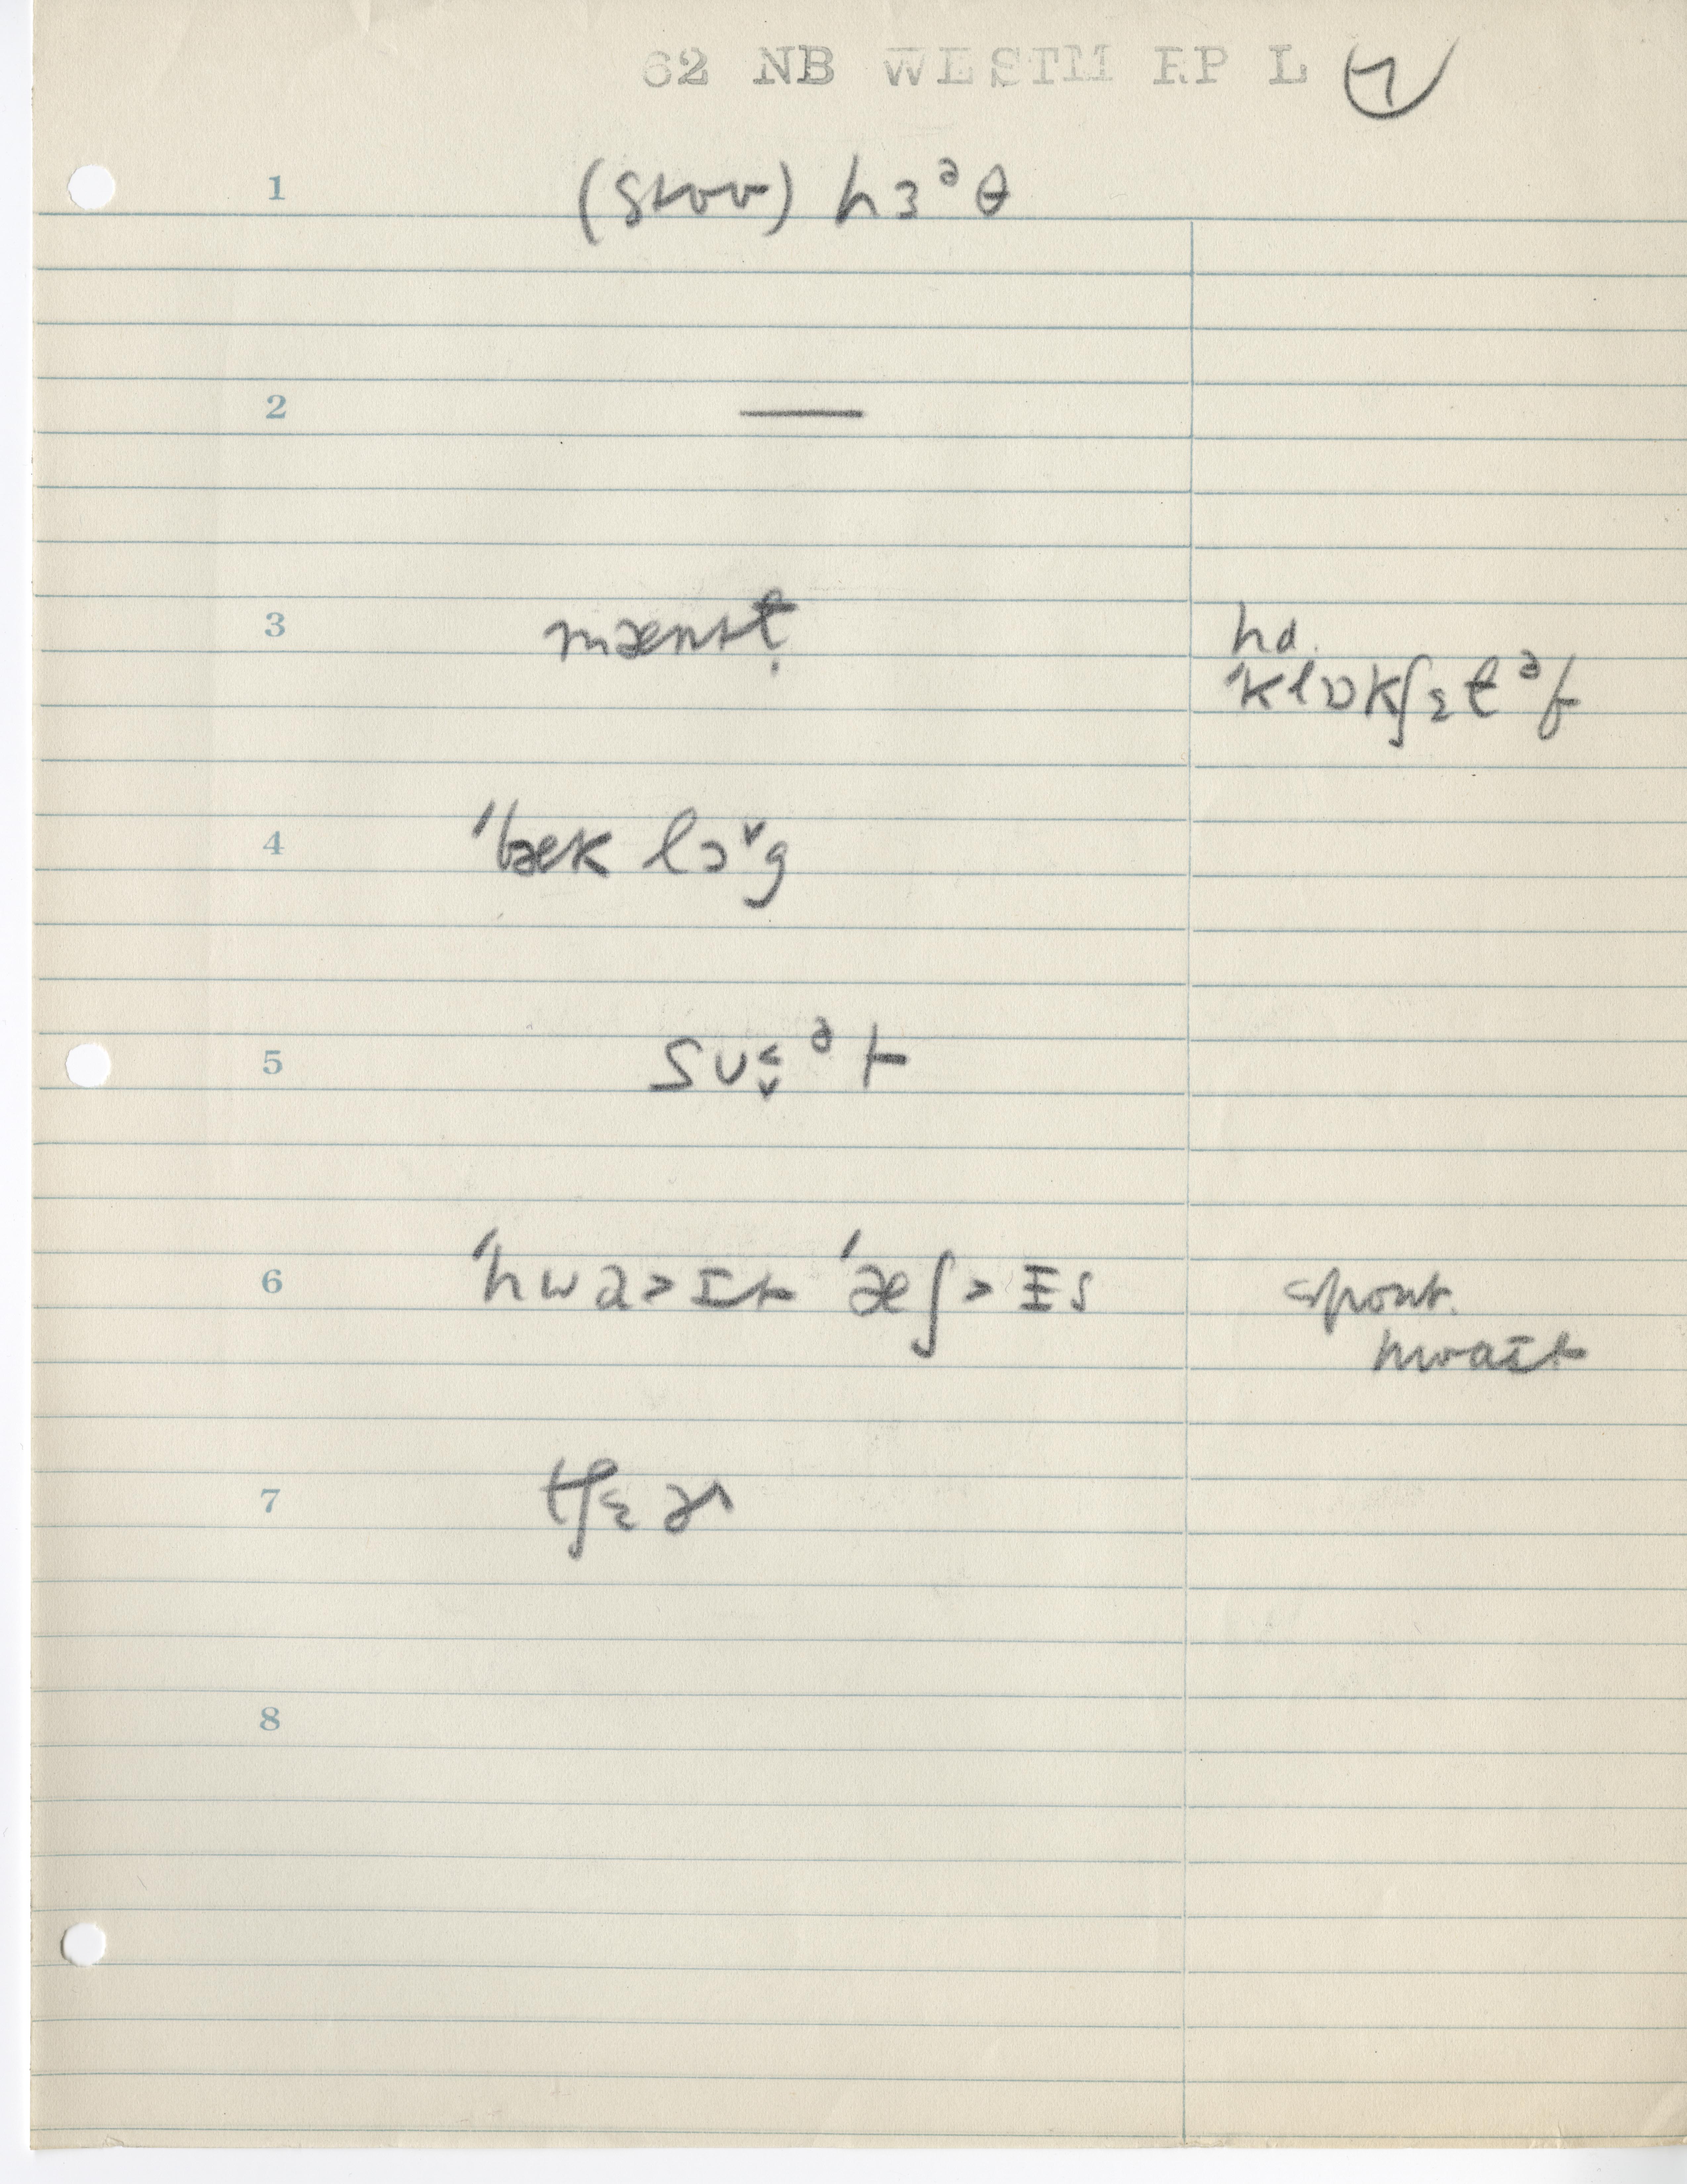 62 NB WESTM RP L 7
1 (stoʊ) hɜᵊθ
2 —
3 mænst̬ hd.
ˈklɒkʃɛtᵊf
4 ˈbæk lɔˇg
5 sʊᵊt
6 ˈhwa>ɪt ˈæʃ>ɪs spont.
hwaɪt
7 tʃɛɚ
8